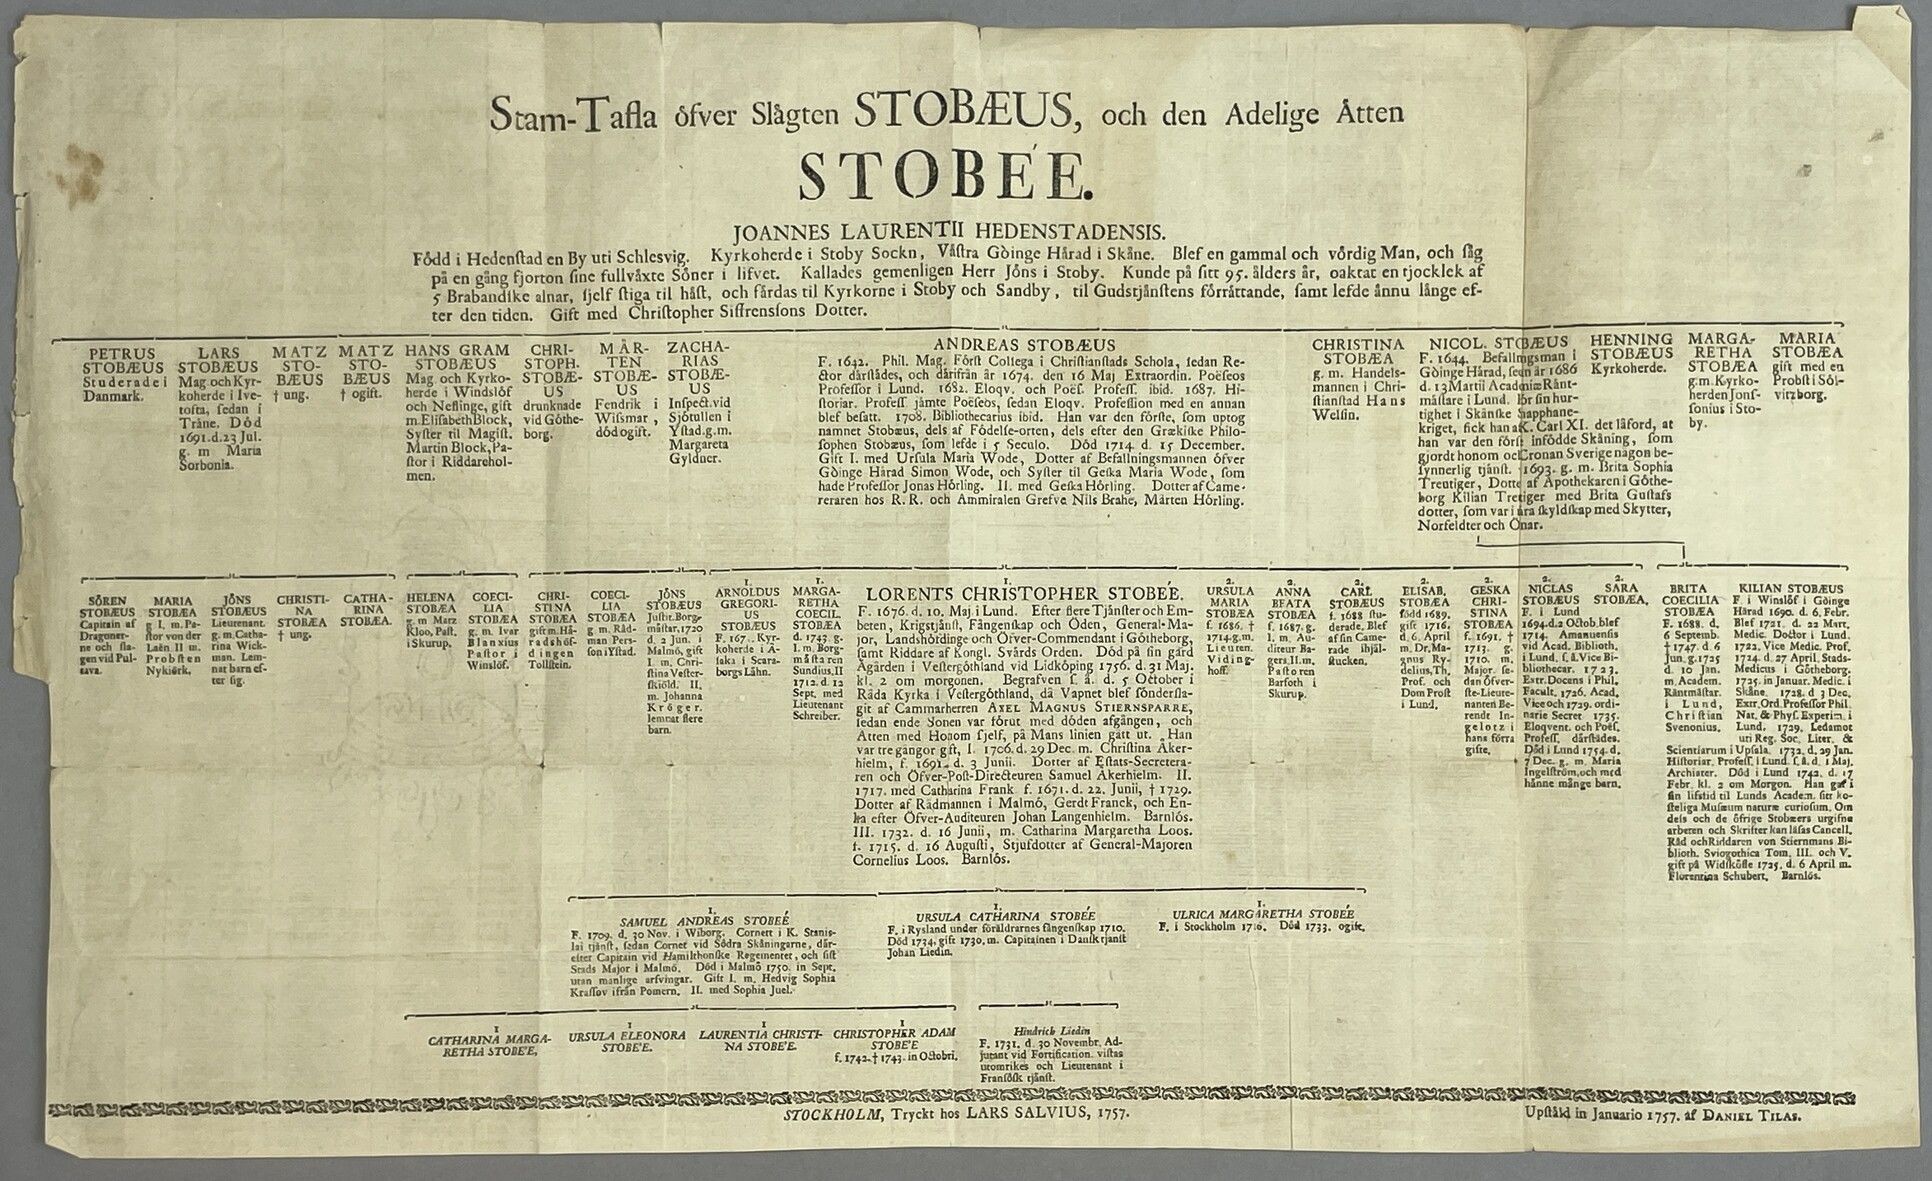 Stam-Tafla öfver Slägten STOBÆUS, och den Adelige Ätten
STOBÉE.
JOANNES LAURENTII HEDENSTADENSIS.
Född i Hedenſtad en By uti Schlesvig. Kyrkoherde i Stoby Sockn, Väſtra Göinge Härad i Skåne. Blef en gammal och vördig Man, och ſåg
på en gång fjorton ſine fullväxte Söner i lifvet. Kallades gemenligen Herr Jöns i Stoby. Kunde på ſitt 95. ålders år, oaktat en tjocklek af
5 Brabandſke alnar, ſjelf ſtiga til häſt, och färdas til Kyrkorne i Stoby och Sandby, til Gudstjänſtens förrättande, ſamt lefde ännu långe ef-
ter den tiden. Gift med Chriſtopher Siffrensſons Dotter.
PETRUS
STOBÆUS
Studerade i
Danmark.
LARS
STOBÆUS
Mag. och Kyr-
koherde i Ive-
tofta, ſedan i
Träne. Död
1691. d. 23 Jul.
g. m Maria
Sorbonia.
MATZ
STO-
BÆUS
† ung.
MATZ
STO-
BÆUS
† ogift.
HANS GRAM
STOBÆUS
Mag. och Kyrko-
herde i Windslöf
och Neflinge, gift
m. Eliſabeth Block,
Syſter til Magiſt.
Martin Block, Pa-
ſtor i Riddarehol-
men.
CHRI-
STOPH.
STOBÆ-
US
drunknade
vid Göthe-
borg.
MÅR-
TEN
STOBÆ-
US
Fendrik i
Wiſmar,
död ogift.
ZACHA-
RIAS
STOBÆ-
US
Inſpect. vid
Sjötullen i
Yſtad. g. m.
Margareta
Gyldner.
ANDREAS STOBÆUS
F. 1642. Phil. Mag. Förſt Collega i Chriſtianſtads Schola, ſedan Re-
ctor därſtädes, och därifrån år 1674. den 16 Maj Extraordin. Poëſeos
Profeſſor i Lund. 1682. Eloqv. och Poëſ. Profeſſ. ibid. 1687. Hi-
ſtoriar. Profeſſ. jämte Poëſeos, ſedan Eloqv. Profeſſion med en annan
blef beſatt. 1708. Bibliothecarius ibid. Han var den förſte, ſom uptog
namnet Stobæus, dels af Födelſe-orten, dels efter den Grækiſke Philo-
ſophen Stobæus, ſom lefde i 5 Seculo. Död 1714. d. 15 December.
Gift I. med Urſula Maria Wode, Dotter af Befallningsmannen öfver
Göinge Härad Simon Wode, och Syſter til Geſka Maria Wode, ſom
hade Profeſſor Jonas Hörling. II. med Geſka Hörling. Dotter af Came-
reraren hos R. R. och Ammiralen Grefve Nils Brahe, Mårten Hörling.
CHRISTINA
STOBÆA
g. m. Handels-
mannen i Chri-
ſtianſtad Hans
Welſin.
NICOL. STOBÆUS
F. 1644. Befallningsman i
Göinge Härad, ſedn år 1686
d. 13 Martii Academiæ Ränt-
mäſtare i Lund. För ſin hur-
tighet i Skånſke Snapphane-
kriget, fick han af K. Carl XI. det låford, at
han var den förſt infödde Skåning, ſom
gjordt honom och Cronan Sverige någon be-
ſynnerlig tjänſt. † 1693. g. m. Brita Sophia
Treutiger, Dotter af Apothekaren i Göthe-
borg Kilian Tretiger med Brita Guſtafs
dotter, ſom var i nra ſkyldſkap med Skytter,
Norfeldter och Önar.
HENNING
STOBÆUS
Kyrkoherde.
MARGA-
RETHA
STOBÆA
g. m. Kyrko-
herden Jonſ-
ſonius i Sto-
by.
MARIA
STOBÆA
gift med en
Probſt i Söl-
vitzborg.
SÖREN
STOBÆUS
Capitain af
Dragoner-
ne och ſla-
gen vid Pul-
tava.
MARIA
STOBÆA
g I. m. Pa-
ſtor von der
Laën. II m.
Probſten
Nykiörk.
JÖNS
STOBÆUS
Lieutenant.
g. m. Catha-
rina Wick-
man. Lem-
nat barn ef-
ter ſig.
CHRISTI-
NA
STOBÆA
† ung.
CATHA-
RINA
STOBÆA.
HELENA
STOBÆA
g. m Matz
Kloo, Paſt.
i Skurup.
COECI-
LIA
STOBÆA
g. m. Ivar
Blanxius
Paſtor i
Winslöf.
CHRI-
STINA
STOBÆA
gift m. Hå-
radshöf-
dingen
Tollſtein.
COECI-
LIA
STOBÆA
g. m. Råd-
man Pers-
ſon i Yſtad.
JÖNS
STOBÆUS
Juſtit. Borg-
mäſtar. 1720
d. 2 Jun. i
Malmö, gift
I. m. Chri-
ſtina Veſter-
ſkiöld. II.
m. Johanna
Kröger.
lemnat flere
barn.
1.
ARNOLDUS
GREGORI-
US
STOBÆUS
F. 167.. Kyr-
koherde i A-
ſaka i Scara-
borgs Låhn.
1.
MARGA-
RETHA
COECIL.
STOBÆA
d. 1743. g.
I. m. Borg-
mäſtaren
Sundius, II
1712. d. 12
Sept. med
Lieutenant
Schreiber.
1.
LORENTS CHRISTOPHER STOBEÉ.
F. 1676. d. 10. Maj i Lund. Efter flere Tjänſter och Em-
beten, Krigstjänſt, Fångenſkap och Öden, General-Ma-
jor, Landshöfdinge och Öfver-Commendant i Götheborg,
ſamt Riddare af Kongl. Svärds Orden. Död på ſin gård
Ågården i Veſtergöthland vid Lidköping 1756. d. 31 Maj.
kl. 2 om morgonen. Begrafven ſ. å. d. 5 October i
Råda Kyrka i Veſtergöthland, då Vapnet blef ſönderſla-
git af Cammarherren AXEL MAGNUS STIERNSPARRE,
ſedan ende Sonen var förut med döden afgången, och
Ätten med Honom ſjelf, på Mans linien gått ut. Han
var tre gångor gift, I. 1706. d. 29 Dec. m. Chriſtina Åker-
hielm, f. 1691. d. 3 Junii. Dotter af Eſtats-Secretera-
ren och Öfver-Poſt-Directeuren Samuel Åkerhielm. II.
1717. med Catharina Frank f. 1671. d. 22. Junii, † 1729.
Dotter af Rådmannen i Malmö, Gerdt Franck, och En-
ka efter Öfver-Auditeuren Johan Langenhielm. Barnlös.
III. 1732. d. 16 Junii, m. Catharina Margaretha Loos.
f. 1715. d. 16 Auguſti, Stjufdotter af General-Majoren
Cornelius Loos. Barnlös.
2.
URSULA
MARIA
STOBÆA
f. 1686. †
1714. g. m.
Lieuten.
Viding-
hoff.
2.
ANNA
BEATA
STOBÆA
f. 1687. g.
I. m. Au-
diteur Ba-
gers. II. m.
Paſtoren
Barfoth i
Skurup.
2.
CARL
STOBÆUS
f. 1688 ſtu-
derade. Blef
af ſin Came-
rade ihjäl-
ſtucken.
2.
ELISAB.
STOBÆA
född 1689.
gift 1716.
d. 6. April
m. Dr. Ma-
gnus Ry-
delius, Th.
Prof. och
Dom Proſt
i Lund.
2.
GESKA
CHRI-
STINA
STOBÆA
f. 1691. †
1713. g.
1710. m.
Major. ſe-
dan Öfver-
ſte-Lieute-
nanten Be-
rendt In-
gelotz i
hans förra
gifte.
2.
NICLAS
STOBÆUS
F. i Lund
1694. d. 2 Octob. blef
1714. Amanuenſis
vid Acad. Biblioth.
i Lund. ſ. å. Vice Bi-
bliothecar. 1723.
Extr. Docens i Phil.
Facult. 1726. Acad.
Vice och 1729. ordi-
narie Secret. 1735.
Eloqvent. och Poëſ.
Profeſſ. därſtädes.
Död i Lund 1754. d.
7 Dec. g. m. Maria
Ingelſtröm, och med
hänne många barn.
2.
SARA
STOBÆA.
BRITA
COECILIA
STOBÆA
F. 1688. d.
6 Septemb.
† 1747. d. 6
Jun. g. 1725
d. 10 Jan.
m. Academ.
Räntmäſtar.
i Lund,
Chriſtian
Svenonius.
KILIAN STOBÆUS
F. i Winslöf i Göinge
Härad 1690. d. 6. Febr.
Blef 1721. d. 22 Mart.
Medic. Doctor i Lund.
1722. Vice Medic. Prof.
1724. d. 27 April. Stads-
Medicus i Götheborg.
1725. in Januar. Medic. i
Skåne. 1728. d 3 Dec.
Extr. Ord. Profeſſor Phil.
Nat. & Phyſ. Experim. i
Lund. 1729. Ledamot
uti Reg. Soc. Liter. &
Scientiarum i Upſala. 1732. d. 29 Jan.
Hiſtoriar. Profeſſ. i Lund. ſ. å. d. 1 Maj.
Archiater. Död i Lund 1742. d. 17
Febr. kl. 2 om Morgon. Han gaf i
ſin lifstid til Lunds Academ. ſitt ko-
ſteliga Muſæum naturæ curioſum. Om
dels och de öfrige Stobæers urgifna
arberen och Skrifter kan läſas Cancell.
Råd och Riddaren von Stiernmans Bi-
blioth. Sviogothica Tom. III. och V.
gift på Widſköfle 1725. d. 6 April m.
Florentina Schubert. Barnlös.
1.
SAMUEL ANDREAS STOBEÉ
F. 1709. d. 30 Nov. i Wiborg. Cornett i K. Stanis-
lai tjänſt, ſedan Cornet vid Södra Skåningarne, där-
efter Capitain vid Hamilthonſke Regementet, och ſiſt
Stads Major i Malmö. Död i Malmö 1750. in Sept.
utan manlige arfvingar. Gift I. m. Hedvig Sophia
Kraſſov ifrån Pomern. II. med Sophia Juel.
1.
URSULA CATHARINA STOBEÉ
F. i Rysland under föräldrarnes fångenſkap 1710.
Död 1734. gift 1730. m. Capitainen i Danſk tjänſt
Johan Liedin.
1.
ULRICA MARGARETHA STOBEÉ
F. i Stockholm 1716. Död 1733. ogift.
1
CATHARINA MARGA-
RETHA STOBE'E.
1
URSULA ELEONORA
STOBE'E.
1
LAURENTIA CHRISTI-
NA STOBE'E.
1
CHRISTOPHER ADAM
STOBE'E
f. 1742. † 1743. in Octobri.
Hindrich Liedin
F. 1731. d. 30 Novembr. Ad-
jutant vid Fortification. viſtas
utomrikes och Lieutenant i
Franſöſk tjänſt.
STOCKHOLM, Tryckt hos LARS SALVIUS, 1757.
Upſtäld in Januario 1757. af DANIEL TILAS.